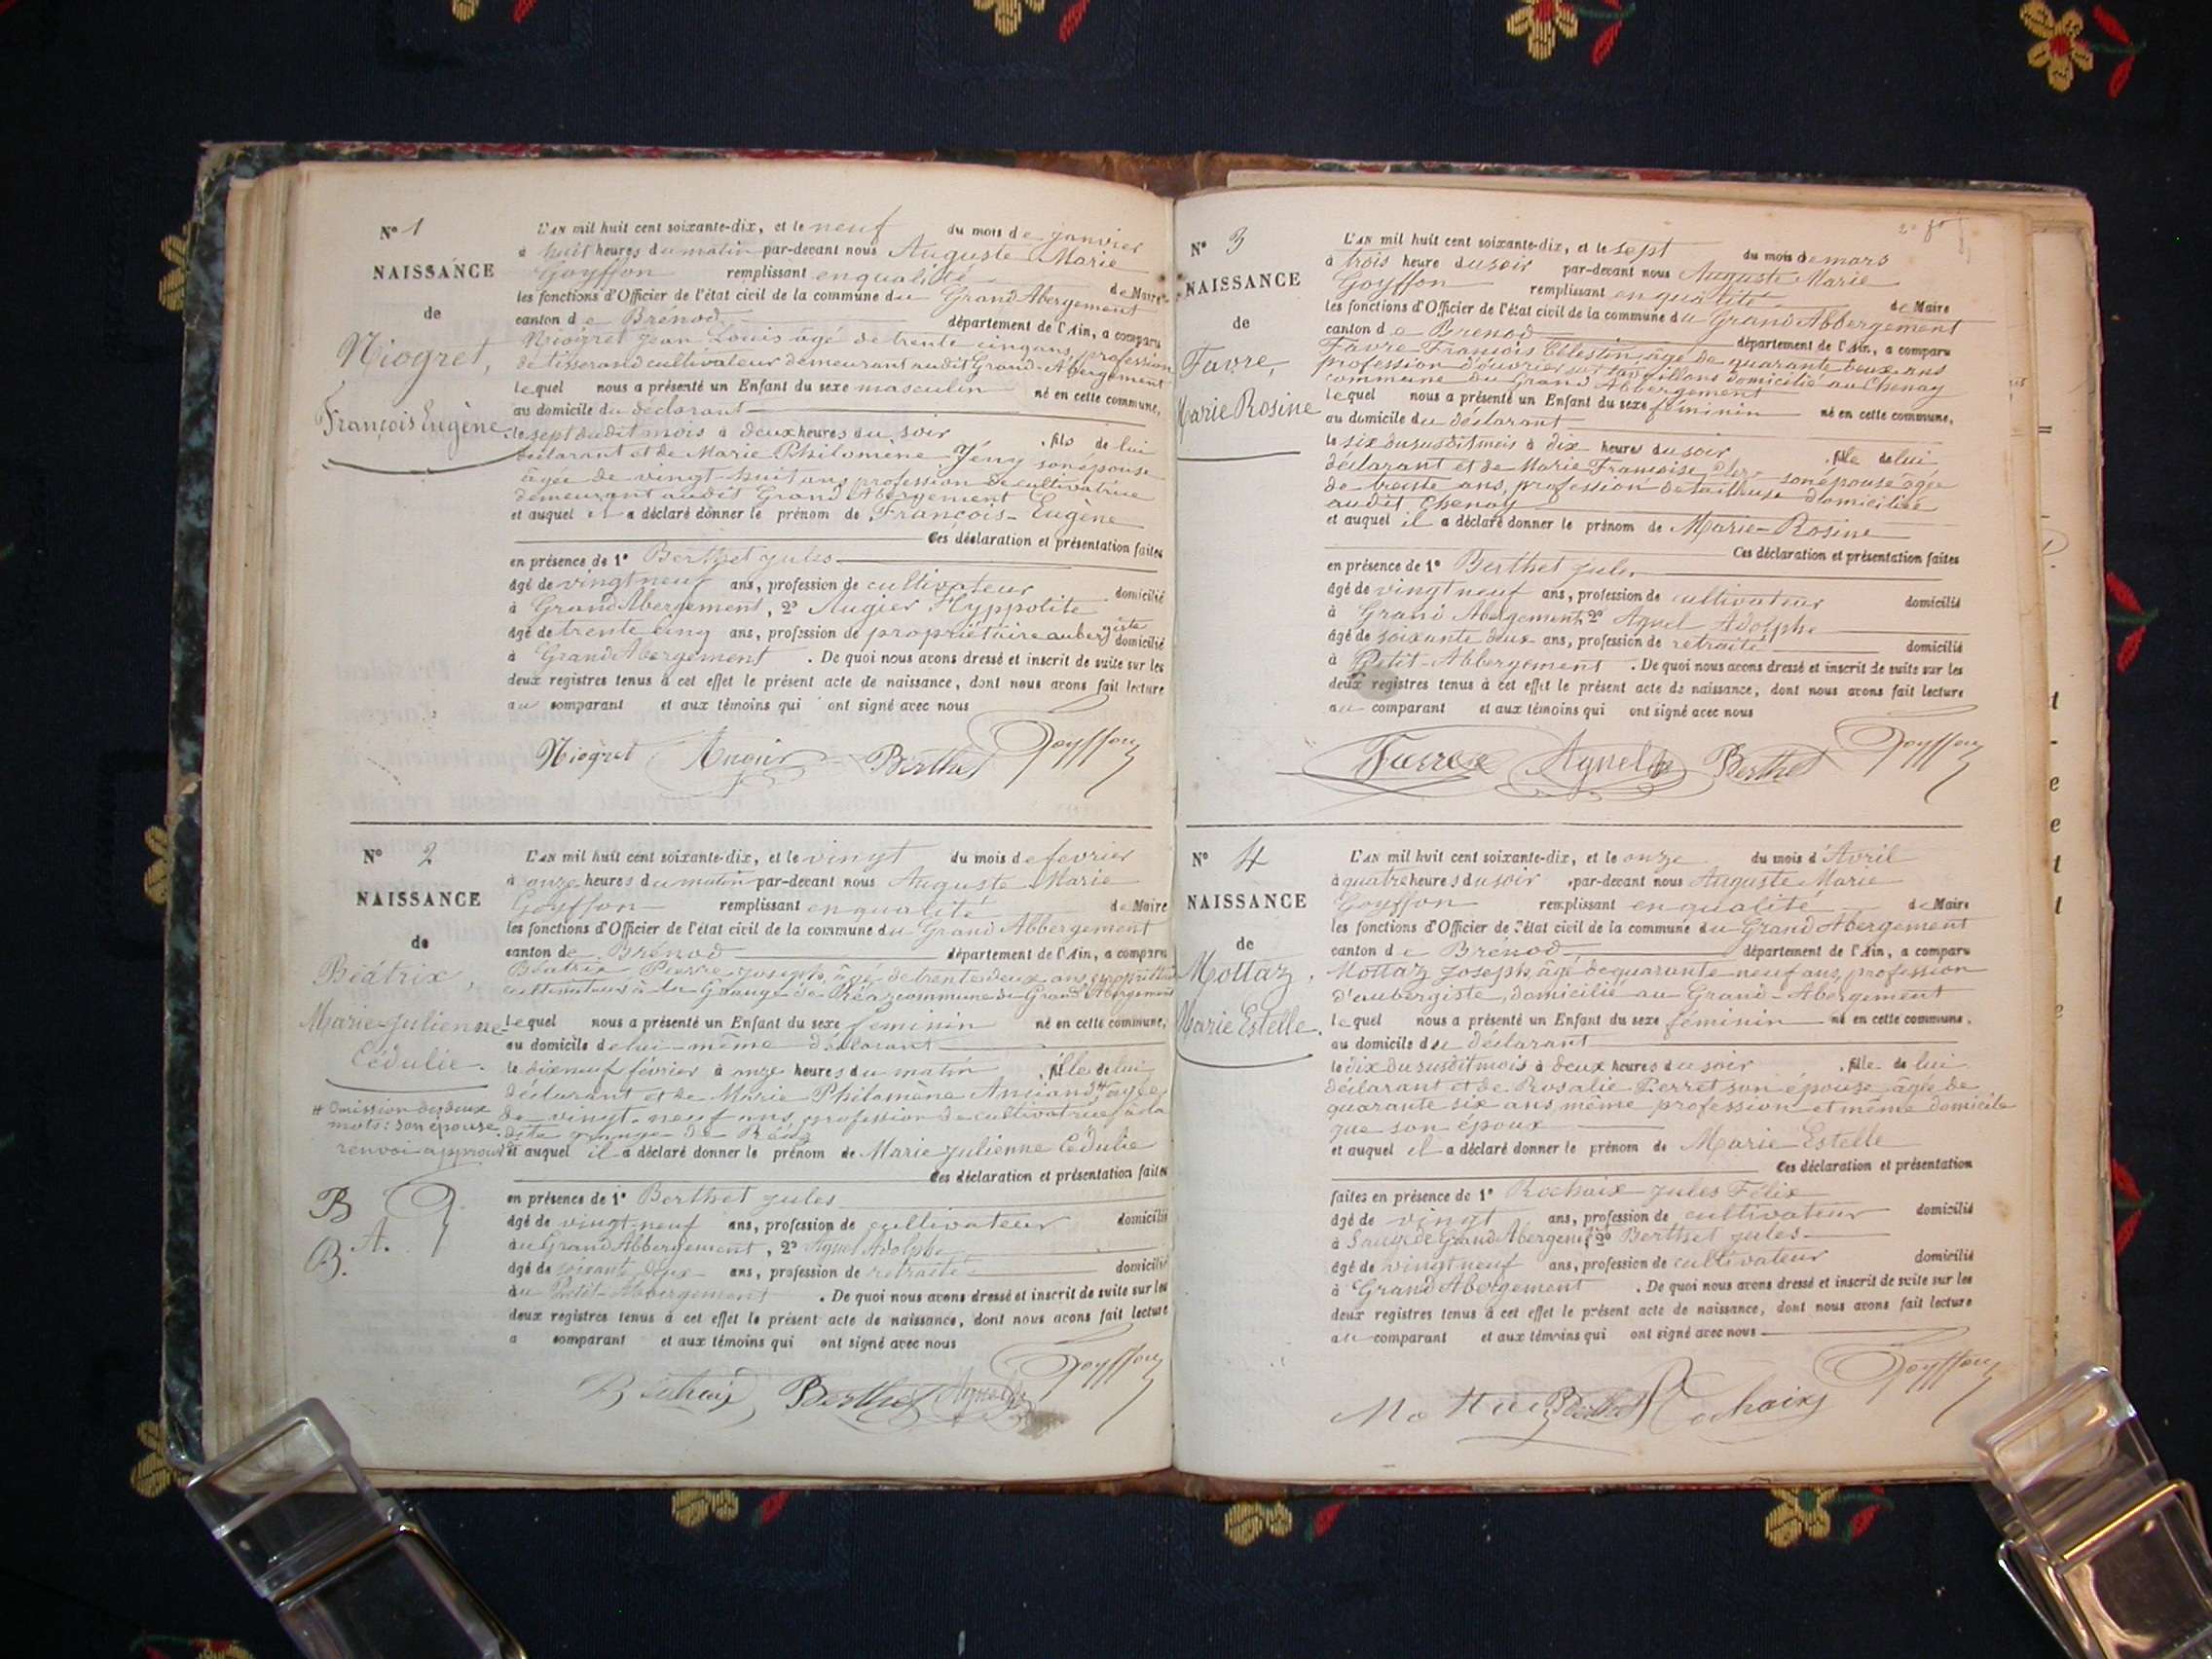 N° 1
NAISSANCE
de
Niogret,
François Eugène.
L'AN mil huit cent soixante-dix, et le neuf du mois de janvier
à huit heures du matin par-devant nous Auguste Marie
Goyffon remplissant en qualité de Maire
les fonctions d'Officier de l'état civil de la commune du Grand Abergement
canton de Brenod département de l'Ain, a comparu
Niogret Jean Louis âgé de trente cinq ans, profession
de tisserand cultivateur demeurant audit Grand-Abergement
lequel nous a présenté un Enfant du sexe masculin né en cette commune,
au domicile du déclarant
le sept dudit mois à deux heures du soir, fils de lui
déclarant et de Marie Philomène Jény son épouse
âgée de vingt-huit ans profession de cultivatrice
demeurant audit Grand Abergement
et auquel il a déclaré donner le prénom de François-Eugène
Ces déclaration et présentation faites
en présence de 1° Berthet Jules
âgé de vingt neuf ans, profession de cultivateur domicilié
à Grand Abergement, 2° Augier Hyppolite
âgé de trente cinq ans, profession de propriétaire aubergiste domicilié
à Grand Abergement. De quoi nous avons dressé et inscrit de suite sur les
deux registres tenus à cet effet le présent acte de naissance, dont nous avons fait lecture
au comparant et aux témoins qui ont signé avec nous
Niogret Berthet Goyffon
N° 2
NAISSANCE
de
Béatrix,
Marie-Julienne-
Cédulie.
# Omission des deux
mots: son épouse.
renvoi approuvé
B G
A.
B.
L'AN mil huit cent soixante-dix, et le vingt du mois de fevrier
à onze heures du matin par-devant nous Auguste Marie
Goyffon remplissant en qualité de Maire
les fonctions d'Officier de l'état civil de la commune du Grand Abbergement
canton de Brénod département de l'Ain, a comparu
Béatrix, Pierre Joseph, âgé de trente deux ans,
cultivateur à la Grange de commune du Grand Abergement
lequel nous a présenté un Enfant du sexe féminin né en cette commune,
au domicile de lui-même déclarant
le dix neuf février à onze heures du matin, fille de lui
déclarant et de Marie Philomène # âgée
de vingt-neuf ans, profession de cultivatrice, à la
dite grange de
et auquel il a déclaré donner le prénom de Marie Julienne Cédulie
Ces déclaration et présentation faites
en présence de 1° Berthet Jules
âgé de vingt-neuf ans, profession de cultivateur domicilié
au Grand Abbergement, 2° Agnel Adolphe
âgé de soixante deux ans, profession de retraité domicilié
au Petit-Abbergement. De quoi nous avons dressé et inscrit de suite sur les
deux registres tenus à cet effet le présent acte de naissance, dont nous avons fait lecture
a comparant et aux témoins qui ont signé avec nous
Berthet Goyffon
N° 3
NAISSANCE
de
Favre,
Marie Rosine
L'AN mil huit cent soixante-dix, et le sept du mois de mars
à trois heure du soir par-devant nous Auguste Marie
Goyffon remplissant en qualité de Maire
les fonctions d'Officier de l'état civil de la commune du Grand Abbergement
canton de Brenod département de l'Ain, a comparu
Favre François Célestin âgé de quarante deux ans
profession d'ouvrier sur tavaillons domicilié au Chenay
commune du Grand Abbergement
lequel nous a présenté un Enfant du sexe féminin né en cette commune,
au domicile du déclarant
le six du susdit mois à dix heure du soir, fille de lui
déclarant et de Marie Françoise son épouse âgée
de trente ans, profession de tailleuse domiciliée
audit Chenay
et auquel il a déclaré donner le prénom de Marie-Rosine
Ces déclaration et présentation faites
en présence de 1° Berthet Jules
âgé de vingt neuf ans, profession de cultivateur domicilié
à Grand Abergement, 2° Agnel Adolphe
âgé de soixante deux ans, profession de retraité domicilié
à Petit-Abbergement. De quoi nous avons dressé et inscrit de suite sur les
deux registres tenus à cet effet le présent acte de naissance, dont nous avons fait lecture
au comparant et aux témoins qui ont signé avec nous
Favre Agnel Berthet Goyffon
N° 4
NAISSANCE
de
Mottaz,
Marie Estelle.
L'AN mil huit cent soixante-dix, et le onze du mois d'Avril
à quatre heures du soir, par-devant nous Auguste Marie
Goyffon remplissant en qualité de Maire
les fonctions d'Officier de l'état civil de la commune du Grand Abergement
canton de Brénod département de l'Ain, a comparu
Mottaz Joseph, âgé de quarante neuf ans, profession
d'aubergiste, domicilié au Grand-Abergement
lequel nous a présenté un Enfant du sexe féminin né en cette commune,
au domicile du déclarant
le dix du susdit mois à deux heures du soir, fille de lui
déclarant et de Rosalie Perret son épouse, âgée de
quarante six ans, même profession et même domicile
que son époux
et auquel il a déclaré donner le prénom de Marie Estelle
Ces déclaration et présentation
faites en présence de 1° Rochaix Jules Félix
âgé de vingt ans, profession de cultivateur domicilié
à Grand Abergemt, 2° Berthet Jules
âgé de vingt neuf ans, profession de cultivateur domicilié
à Grand Abergement. De quoi nous avons dressé et inscrit de suite sur les
deux registres tenus à cet effet le présent acte de naissance, dont nous avons fait lecture
au comparant et aux témoins qui ont signé avec nous
Berthet Rochaix Goyffon